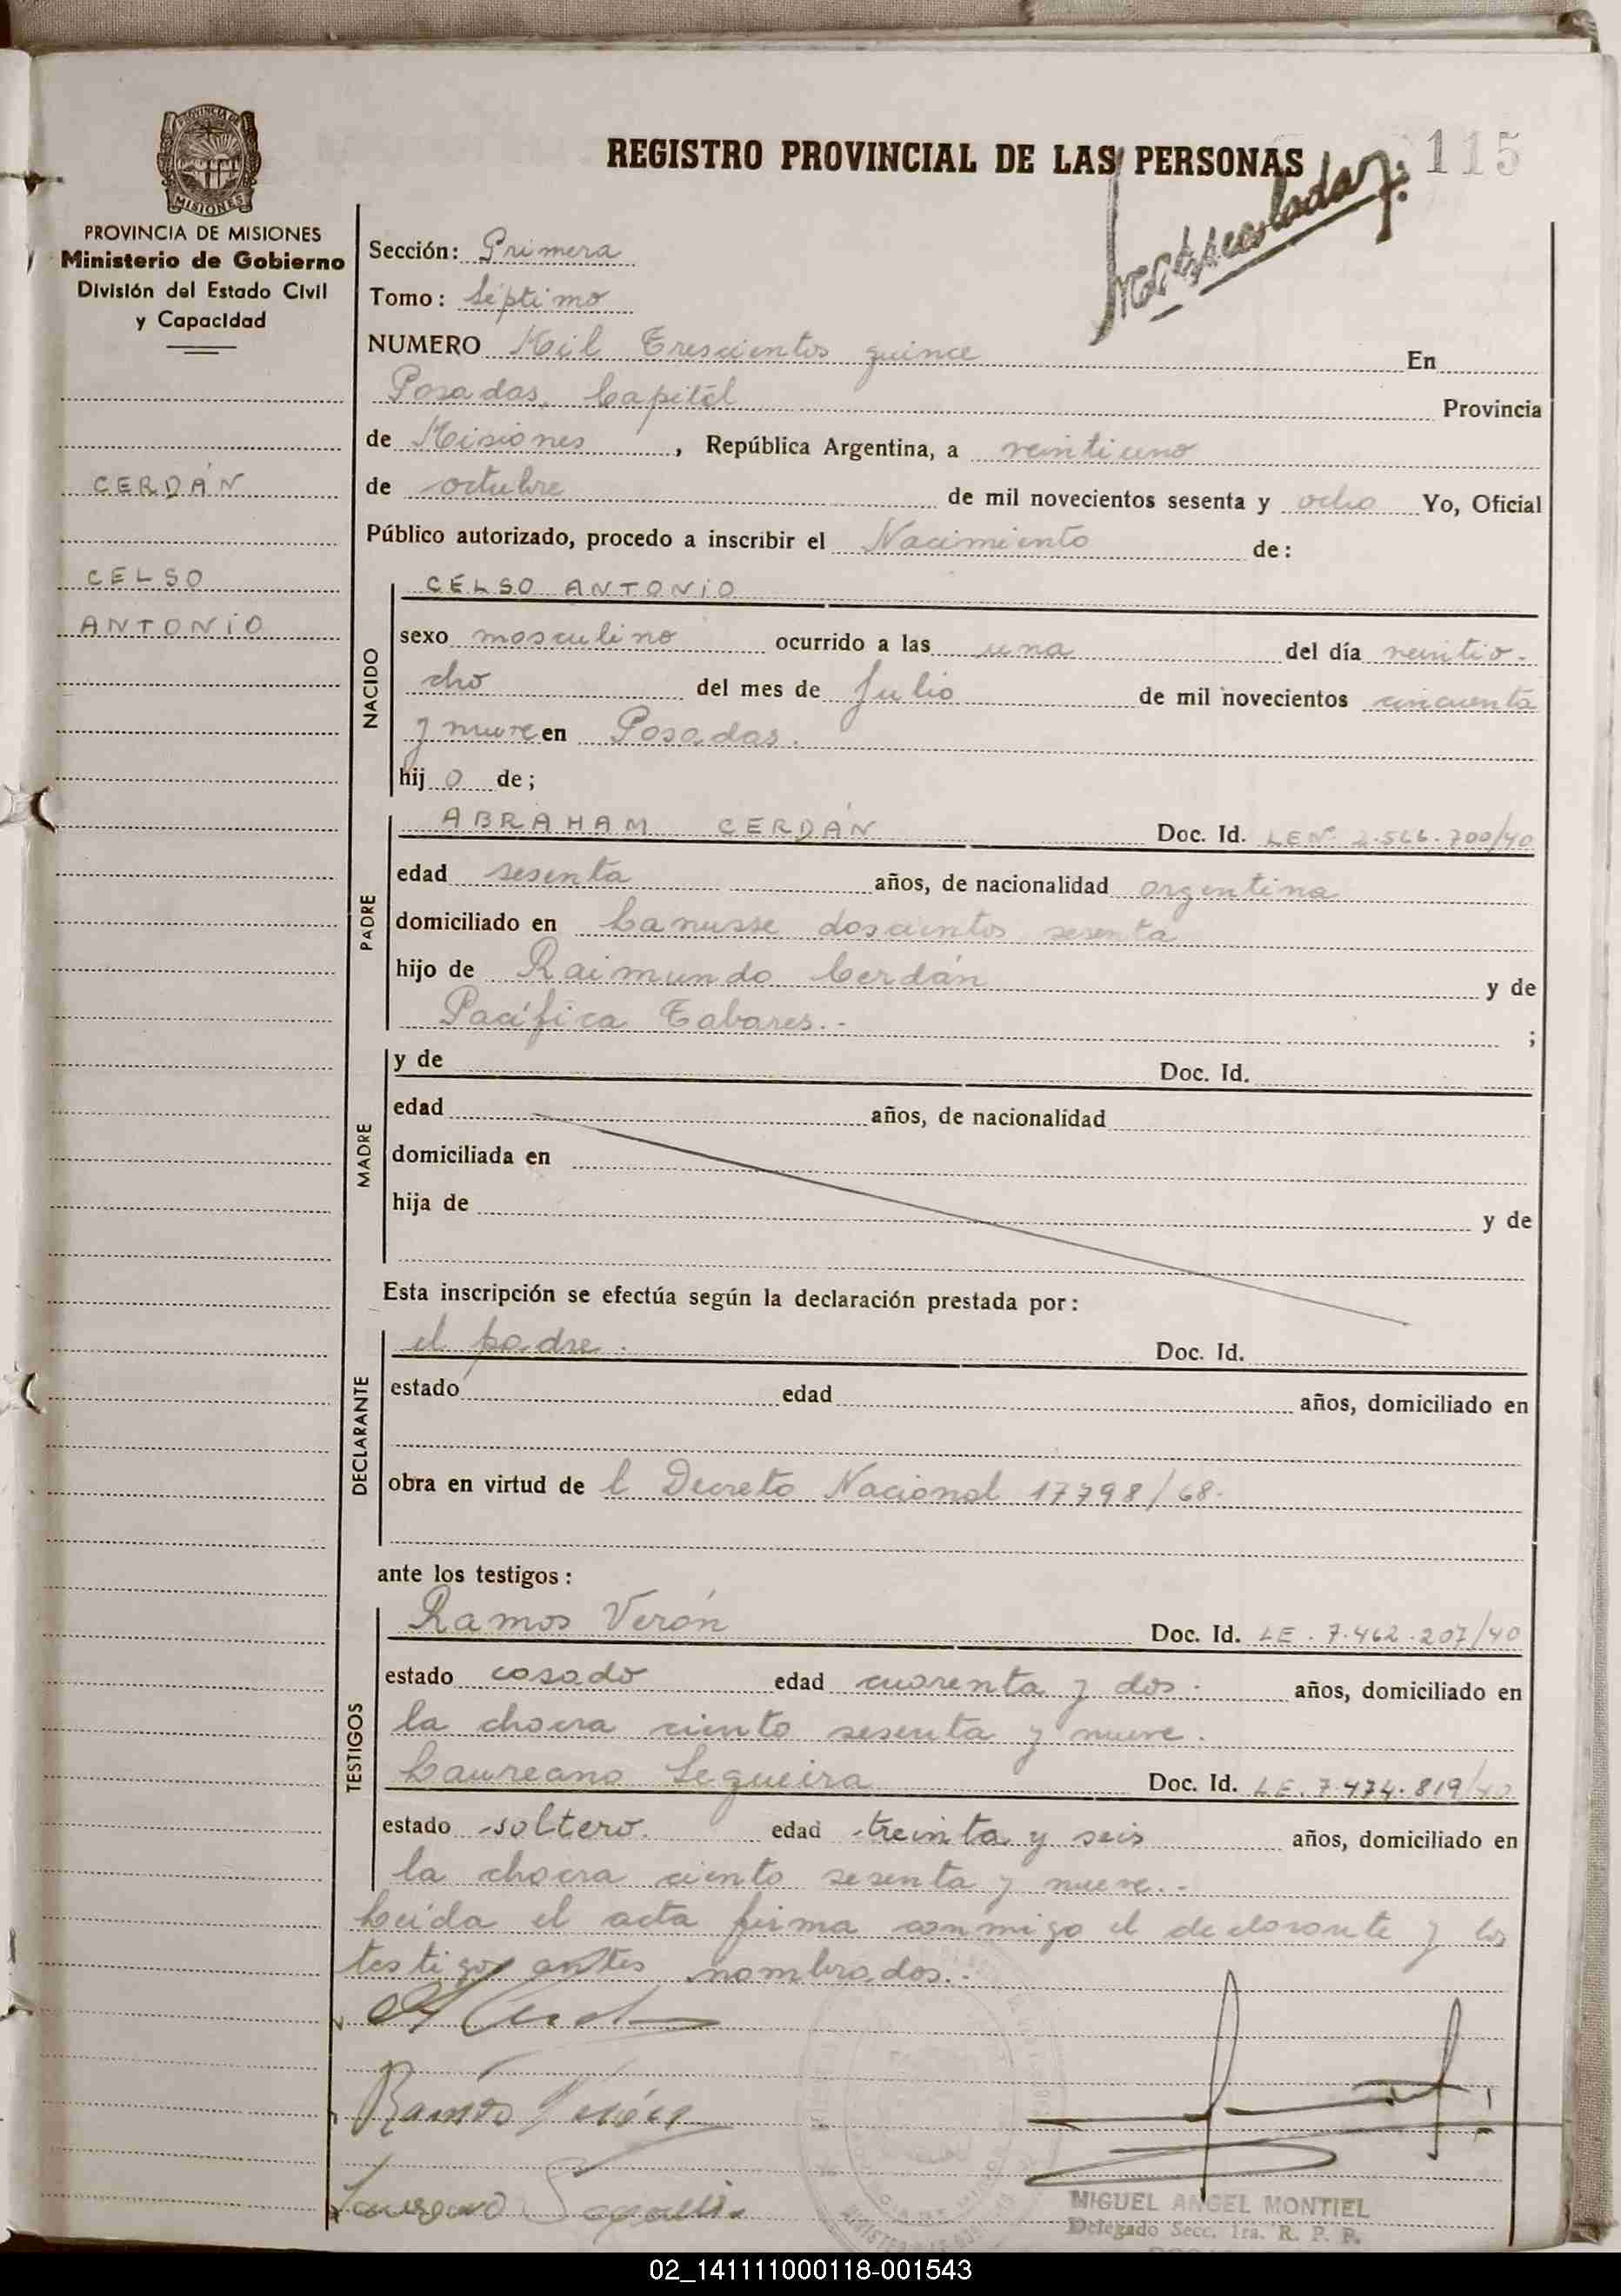 PROVINCIA DE MISIONES
REGISTRO PROVINCIAL DE LAS PERSONAS
115
Matriculado
PROVINCIA DE MISIONES
Ministerio de Gobierno
División del Estado Civil
y Capacidad
CERDÁN
CELSO
ANTONIO
Sección: Primera
Tomo: Séptimo
NUMERO Mil Trescientos quince En
Posadas, Capital Provincia
de Misiones, República Argentina, a veintiuno
de octubre de mil novecientos sesenta y ocho Yo, Oficial
Público autorizado, procedo a inscribir el Nacimiento de:
NACIDO
CELSO ANTONIO
sexo masculino ocurrido a las una del día veintio-
cho del mes de Julio de mil novecientos cincuenta
y nueve en Posadas.
hijo de;
PADRE
ABRAHAM CERDÁN Doc. Id. LE Nº 2.566.700/40
edad sesenta años, de nacionalidad argentina
domiciliado en Lanusse doscientos sesenta
hijo de Raimundo Cerdán y de
Pacífica Tabares.- ;
MADRE
y de Doc. Id.
edad años, de nacionalidad
domiciliada en
hija de y de
Esta inscripción se efectúa según la declaración prestada por:
DECLARANTE
el padre. Doc. Id.
estado edad años, domiciliado en
obra en virtud de l Decreto Nacional 17798/68.
ante los testigos:
TESTIGOS
Ramos Verón Doc. Id. LE. 7.462.207/40
estado casado edad cuarenta y dos. años, domiciliado en
la chacra ciento sesenta y nueve.
Laureano Segueira Doc. Id. LE. 7.474.819/40
estado soltero. edad treinta y seis años, domiciliado en
la chacra ciento sesenta y nueve.-
Leída el acta firma conmigo el declarante y los
testigos antes nombrados.-
Ramos Verón
MIGUEL ANGEL MONTIEL
Delegado Secc. 1ra. R. P. P.
02_141111000118-001543